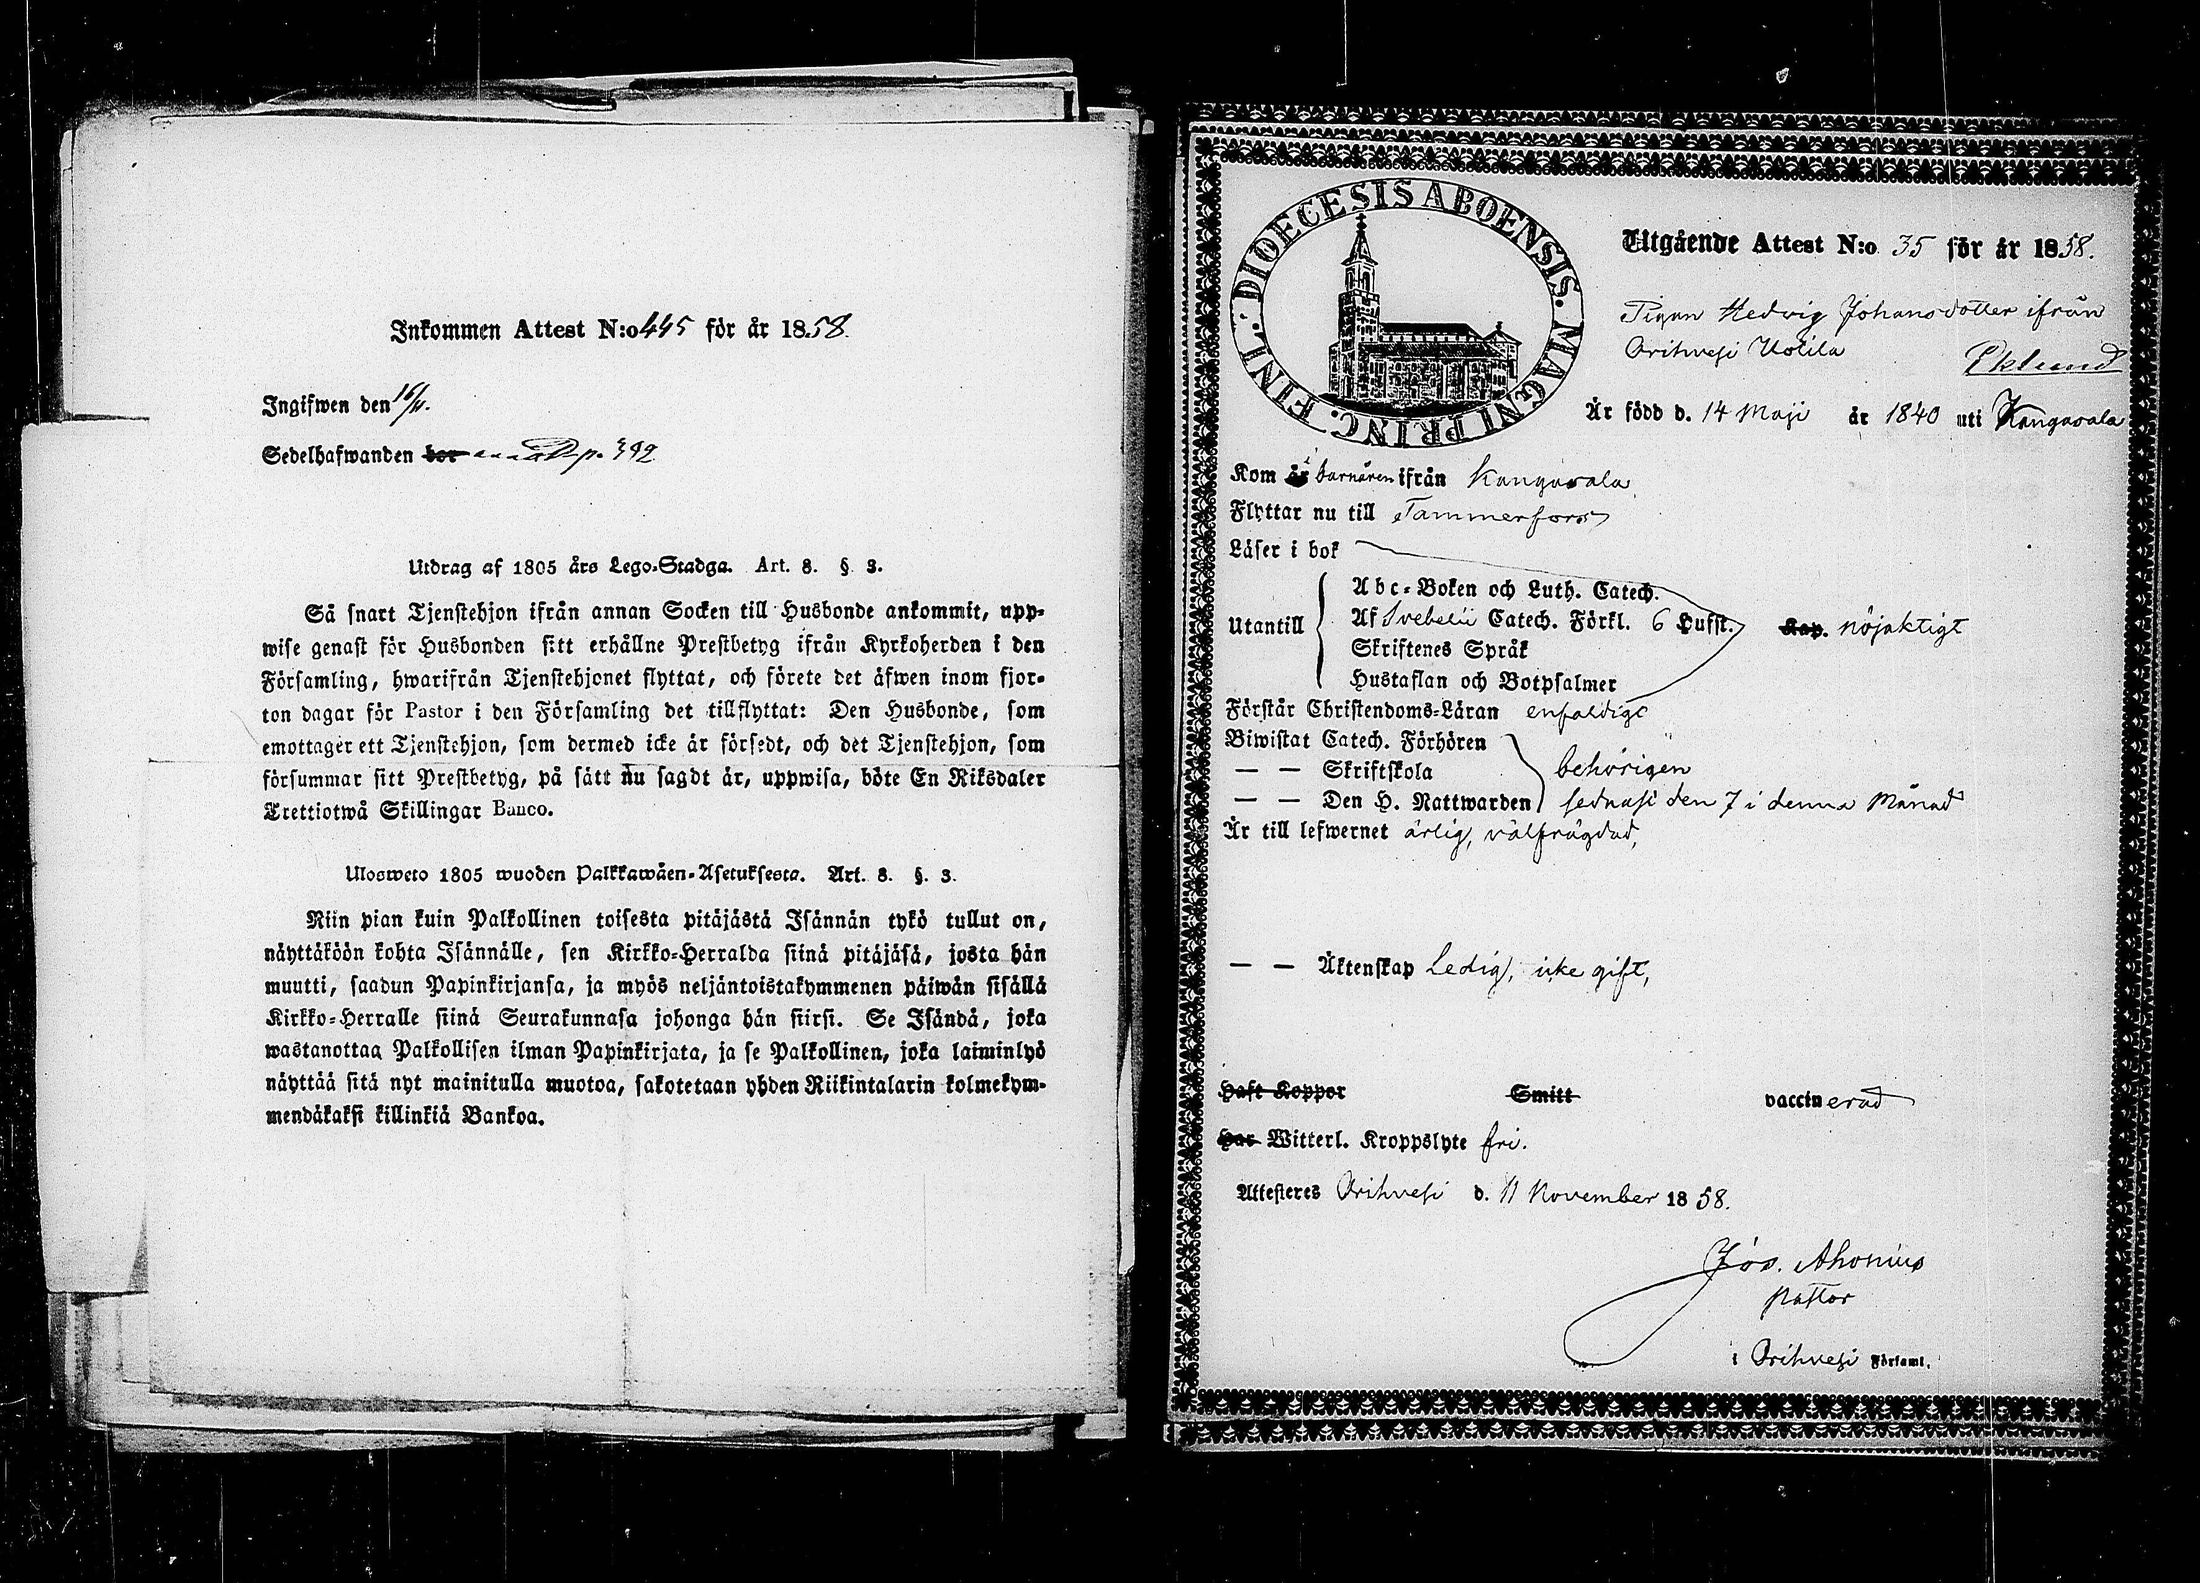 Inkommen Attest N:o 445 för år 1858.
Ingifwen den 16/11.
Sedelhafwanden bor p. 392
Utdrag af 1805 års Lego-Stadga. Art. 8. § 3.
Så snart Tjenstehjon ifrån annan Socken till Husbonde ankommit, upp-
wise genast för Husbonden sitt erhållne Prestbetyg ifrån Kyrkoherden i den
Församling, hwarifrån Tjenstehjonet flyttat, och förete det äfwen inom fjor-
ton dagar för Pastor i den Församling det tillflyttat: Den Husbonde, som
emottager ett Tjenstehjon, som dermed icke är försedt, och det Tjenstehjon, som
försummar sitt Prestbetyg, på sätt nu sagdt är, uppwisa, böte En Riksdaler
Trettiotwå Skillingar Banco.
Ulosweto 1805 wuoden Palkkawäen-Asetuksesta. Art. 8. §. 3.
Niin pian kuin Palkollinen toisesta pitäjästä Isännän tykö tullut on,
näyttäköön kohta Isännälle, sen Kirkko-Herralda siinä pitäjäsä, josta hän
muutti, saadun Papinkirjansa, ja myös neljäntoistakymmenen päiwän sisällä
Kirkko-Herralle siinä Seurakunnasa johonga hän siirsi. Se Isändä, joka
wastanottaa Palkollisen ilman Papinkirjata, ja se Palkollinen, joka laiminlyö
näyttää sitä nyt mainitulla muotoa, sakotetaan yhden Riikintalarin kolmekym-
mendäkaksi killinkiä Bankoa.
DIOECESIS ABOENSIS. MAGNI PRINC. FINL.
Utgående Attest N:o 35 för år 1858.
Pigan Hedvig Johansdotter ifrån
Orihvesi Uotila
Eklund
Är född d. 14 Maji år 1840 uti Kangasala
Kom år i barnåren ifrån Kangasala
Flyttar nu till Tammerfors
Läser i bok
Abc-Boken och Luth. Catech.
Utantill Af Svebelii Catech. Förkl. 6 Hufst. Kap. nöjaktigt
Skriftenes Språk
Hustaflan och Botpsalmer
Förstår Christendoms-Läran enfaldigt
Biwistat Catech. Förhören
— — Skriftskola behörigen
— — Den H. Nattwarden sednast den 7 i denna Månad
Är till lefwernet ärlig, välfrägdad,
— — Äktenskap Ledig, icke gift,
Haft Koppor Smitt vaccinerad
Har Witterl. Kroppslyte fri.
Attesteres Orihvesi d. 11 November 1858.
Jos. Ahonius
Pastor
i Orihvesi Församl.